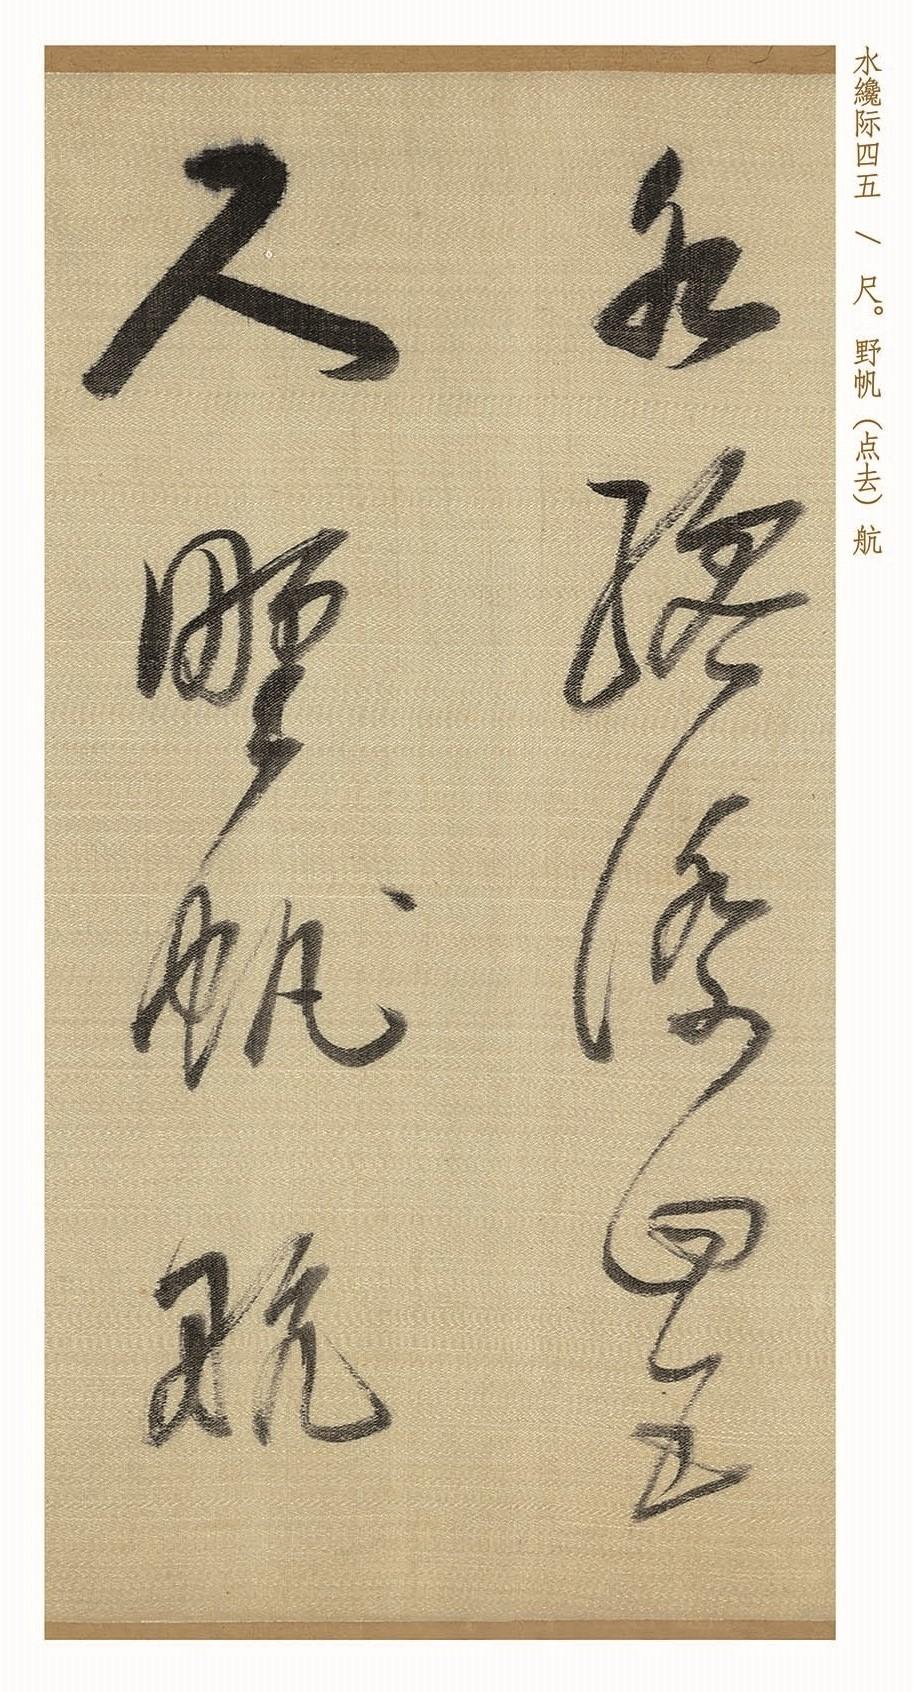 水纔际四五 / 尺。野帆（点去）航
水纔深四五
尺野帆航